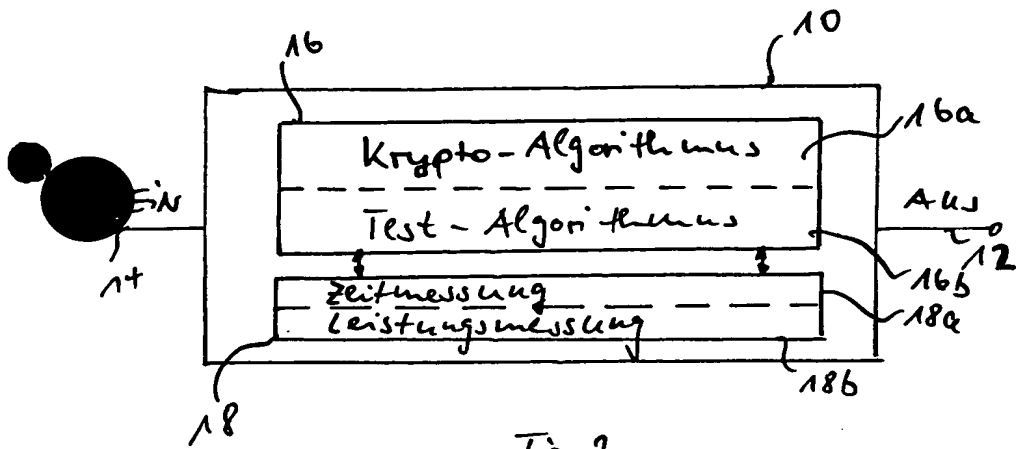 16
10
Krypto-Algorithmus
16a
Ein
Test-Algorithmus
Aus
14
12
16b
Zeitmessung
18a
Leistungsmessung
18
18b